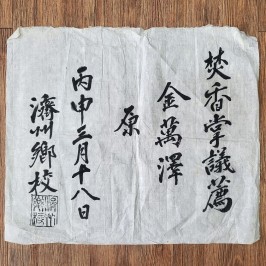 焚香掌議薦
金萬澤
原
丙申三月十八日
濟州鄉校